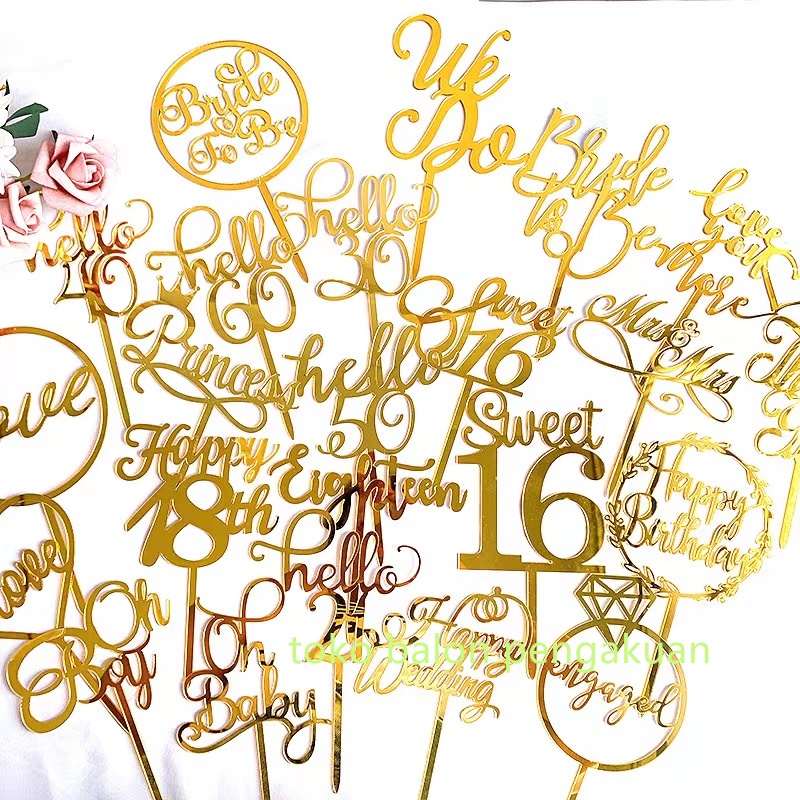 Bride
To Be
We
Do
Bride
to Be
love
you
more
hello
40
hello
60
hello
30
Princess
hello
50
Sweet
16
Mrs & Mrs
Love
Happy
18th
Eighteen
Sweet
16
Happy
Birthday
love
Oh
Boy
Oh
Baby
hello
Happy
Wedding
engaged
toko balon pengakuan